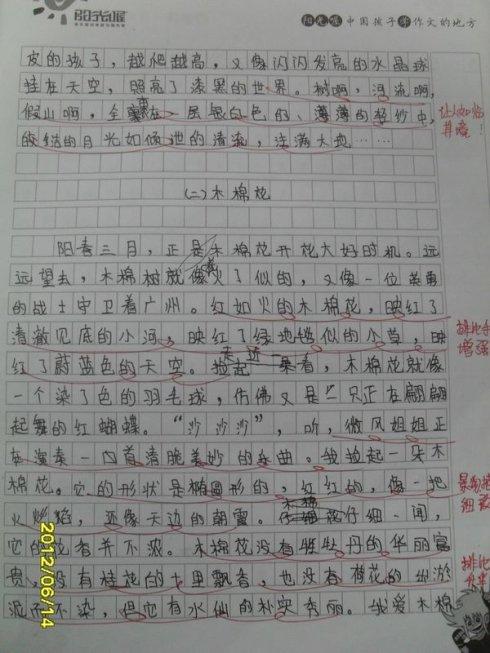 阳光喔
阳光喔 中国孩子学作文的地方
皮的孩子,越爬越高,又像闪闪发亮的水晶球
挂在天空,照亮了漆黑的世界。树啊,河流啊,
假山啊,全裹在一层银白色的、薄薄的轻纱中,
皎洁的月光如倾泄的清流,注满大地……
让人如临
其境!
(二)木棉花
阳春三月,正是木棉花开花大好时机。远
远望去,木棉树就像着火了似的,又像一位英勇
的战士守卫着广州。红如火的木棉花,映红了
清澈见底的小河,映红了绿地毯似的小草,映
排比手
增强
红了蔚蓝色的天空。走近一看,木棉花就像
一个染了色的羽毛球,仿佛又是一只正在翩翩
起舞的红蝴蝶。“沙沙沙”,听,微风姐姐正
在演奏一首清脆美妙的乐曲。我捡起一朵木
棉花。它的形状是椭圆形的,红红的,像一把
火焰,还像天边的朝霞。木棉花仔细一闻,
细致
它的花香并不浓。木棉花没有牡丹的华丽富
贵,没有桂花的十里飘香,也没有荷花的出淤
排比
泥而不染,但它有水仙的朴实秀丽。我爱木棉
2012/06/14